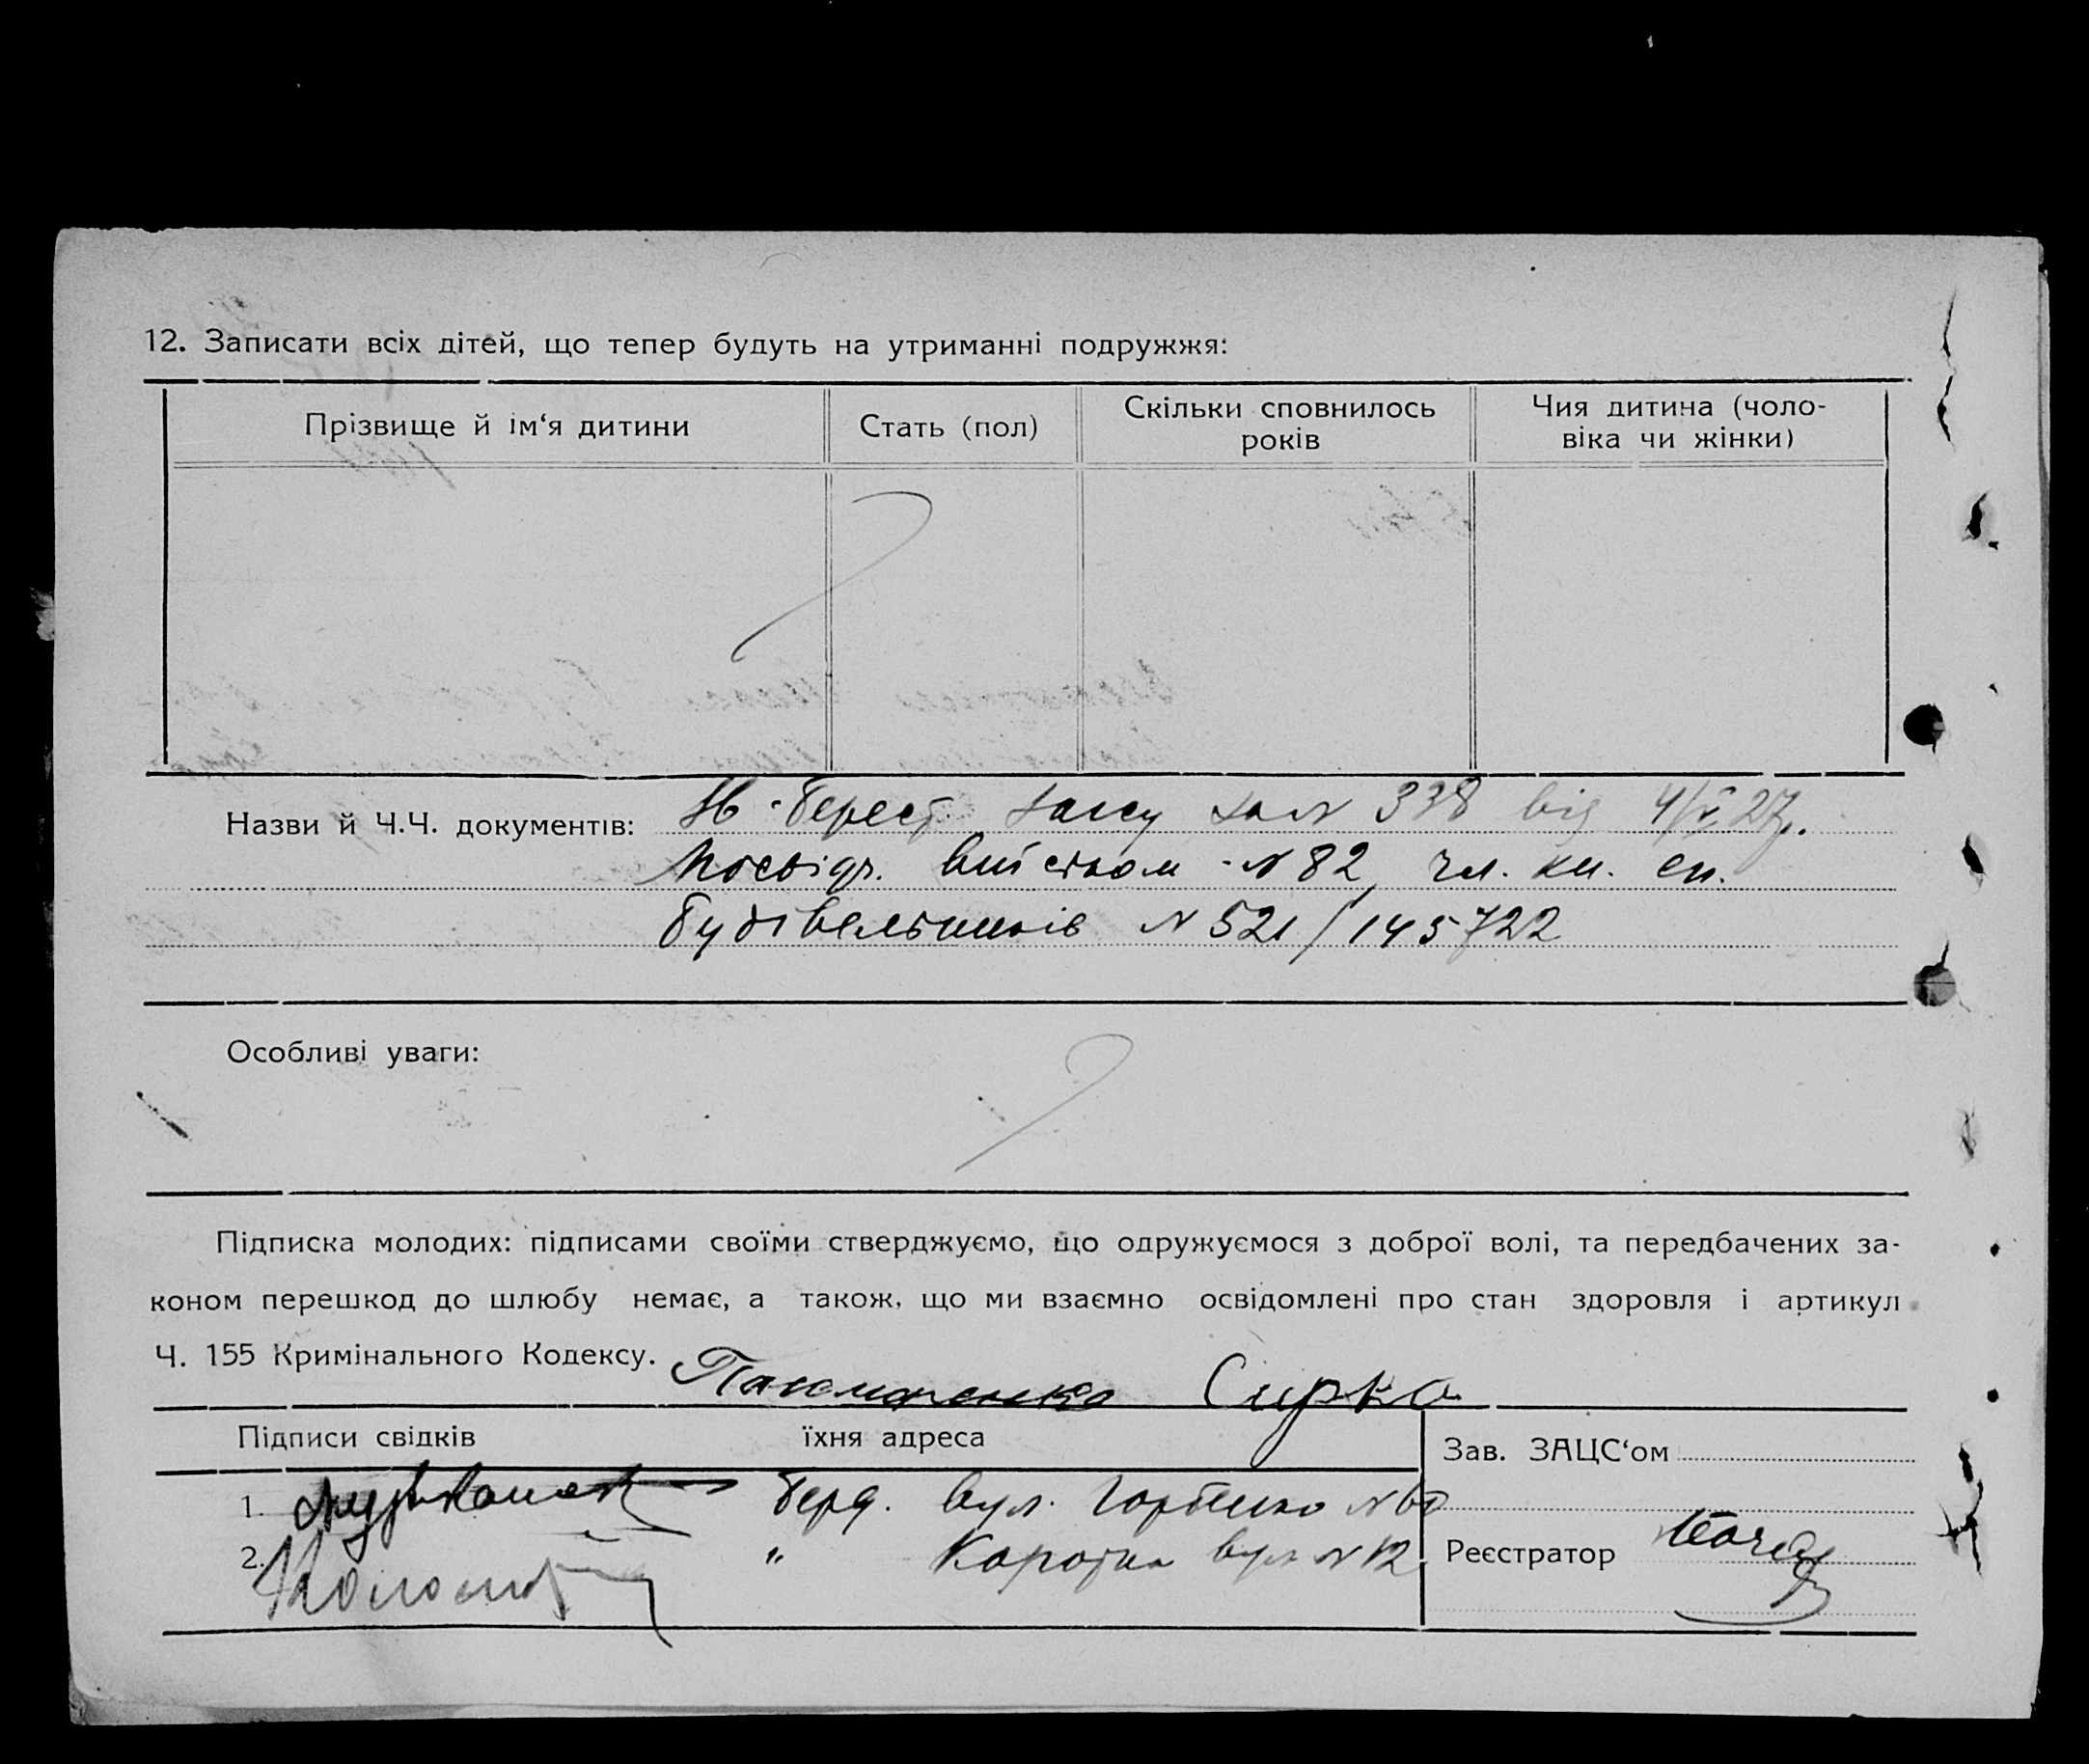 12. Записати всіх дітей, що тепер будуть на утриманні подружжя:
Прізвище й ім‘я дитини
Стать (пол)
Скільки сповнилось
років
Чия дитина (чоло-
віка чи жінки)
Назви й Ч.Ч. документів: 338 від 4/V 27р.
Посвідч. N 82, чл. кн. сп.
будівельників N 521/145722
Особливі уваги:
Підписка молодих: підписами своїми стверджуємо, що одружуємося з доброї волі, та передбачених за-
коном перешкод до шлюбу немає, а також, що ми взаємно освідомлені про стан здоровля і артикул
Ч. 155 Кримінального Кодексу. Сирко
Підписи свідків
їхня адреса
Зав. ЗАЦС‘ом
1. Берд. вул. N 60
2. " Коротка вул N 12
Реєстратор